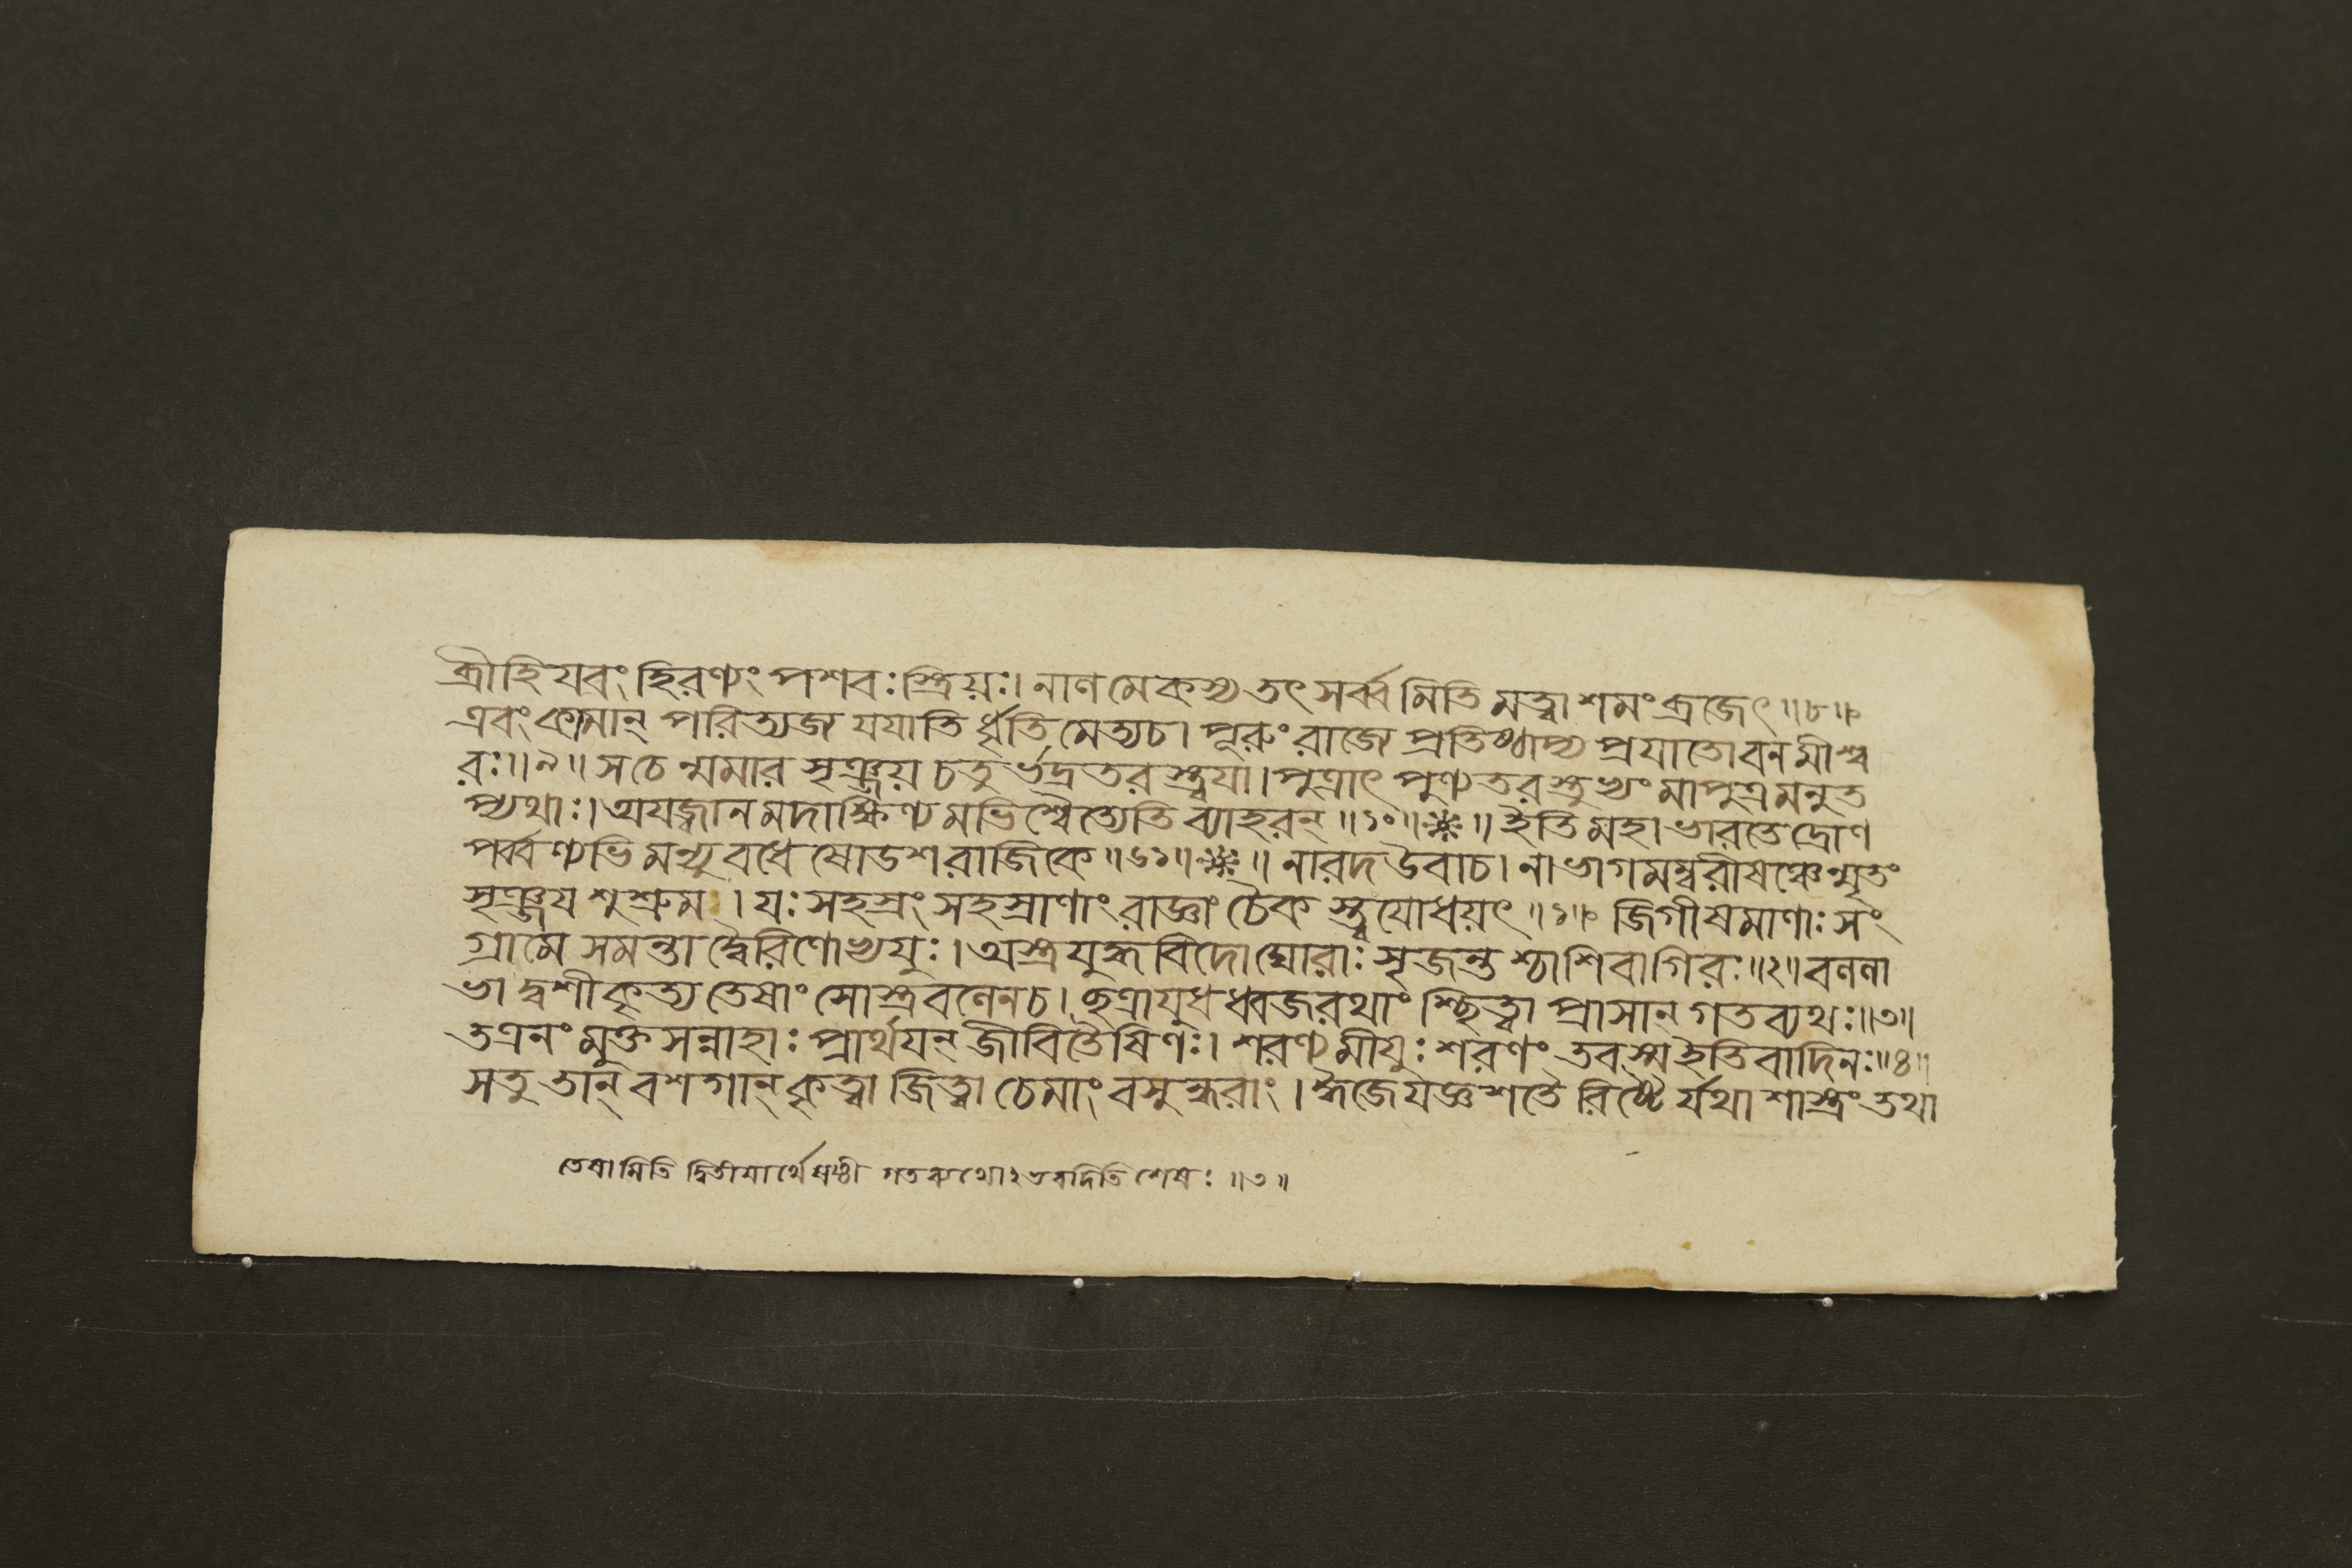 ব্রীহিযবং হিরণ্যং পশবঃ স্ত্রিয়ঃ। নালমেকস্য তৎ সর্ব্বমিতি মত্বা শমং ব্রজেৎ॥৮॥
এবং কামান্ পরিত্যজ্য যযাতির্ধৃতিমেত্য চ। পূরুং রাজ্যে প্রতিষ্ঠাপ্য প্রযাতো বনমীশ্ব
রঃ॥৯॥ স চেন্মমার সৃঞ্জয় চতুর্ভদ্রতরস্ত্বয়া। পুত্রাৎ পুণ্যতরস্তুভ্যং মা পুত্রমনুত
প্যথাঃ। অযজ্বানমদাক্ষিণ্যমভিশ্বৈত্যেতি ব্যাহরন্॥১০॥ ॥ ইতি মহাভারতে দ্রোণ
পর্ব্বণ্যভিমন্যুবধে ষোডশরাজিকে॥৬১॥ ॥ নারদ উবাচ। নাভাগমম্বরীষঞ্চেন্মৃতং
সৃঞ্জয শুশ্রুম। যঃ সহস্রং সহস্রাণাং রাজ্ঞাং চৈকস্ত্বযোধয়ৎ॥১॥ জিগীষমাণাঃ সং
গ্রামে সমন্তাদ্বৈরিণোভ্যযুঃ। অস্ত্রযুদ্ধবিদো ঘোরাঃ সৃজন্তশ্চাশিবা গিরঃ॥২॥ বললা
ভাদ্বশীকৃত্য তেষাং সোস্ত্রবলেন চ। ছত্রাযুধধ্বজরথাংশ্ছিত্বা প্রাসান্ গতব্যথঃ॥৩॥
ত এনং মুক্তসন্নাহাঃ প্রার্থযন্ জীবিতৈষিণঃ। শরণ্যমীযুঃ শরণং তব স্ম ইতি বাদিনঃ॥৪॥
স তু তান্ বশগান্ কৃত্বা জিত্বা চেমাং বসুন্ধরাং। ঈজে যজ্ঞশতৈরিষ্টৈর্যথাশাস্ত্রং তথা
তেষামিতি দ্বিতীয়ার্থে ষষ্ঠী গতব্যথোঽভবদিতি শেষঃ॥৩॥